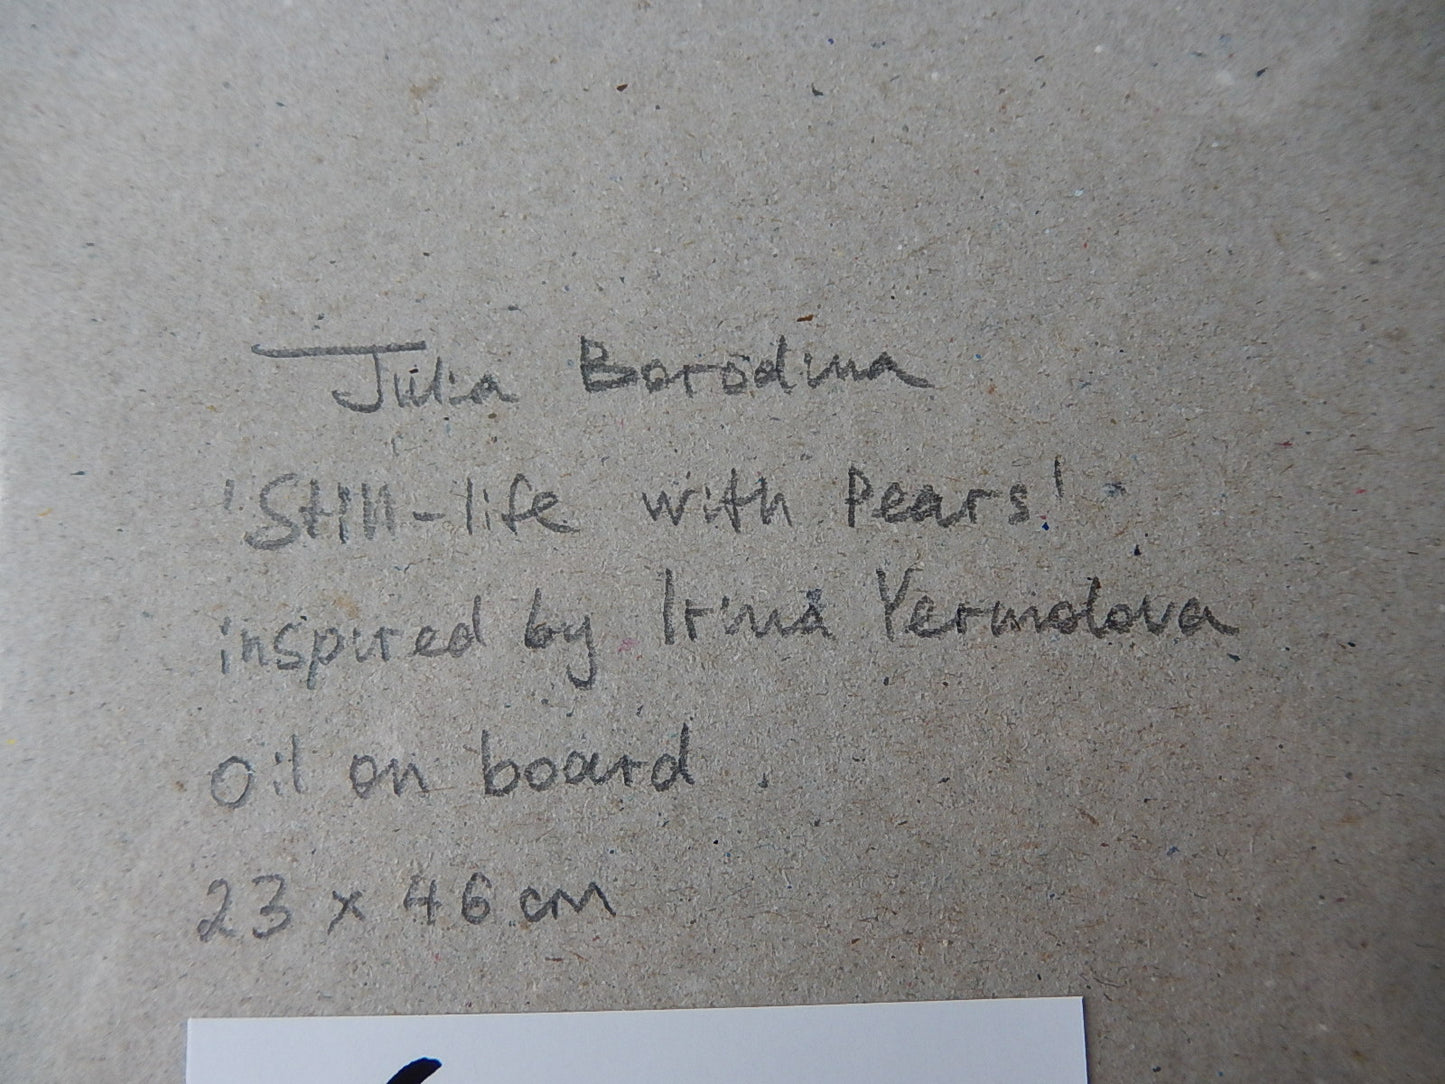 Julia Borodina
'Still-life with Pears'
inspired by Irina Yermolova
oil on board.
23 x 46 cm